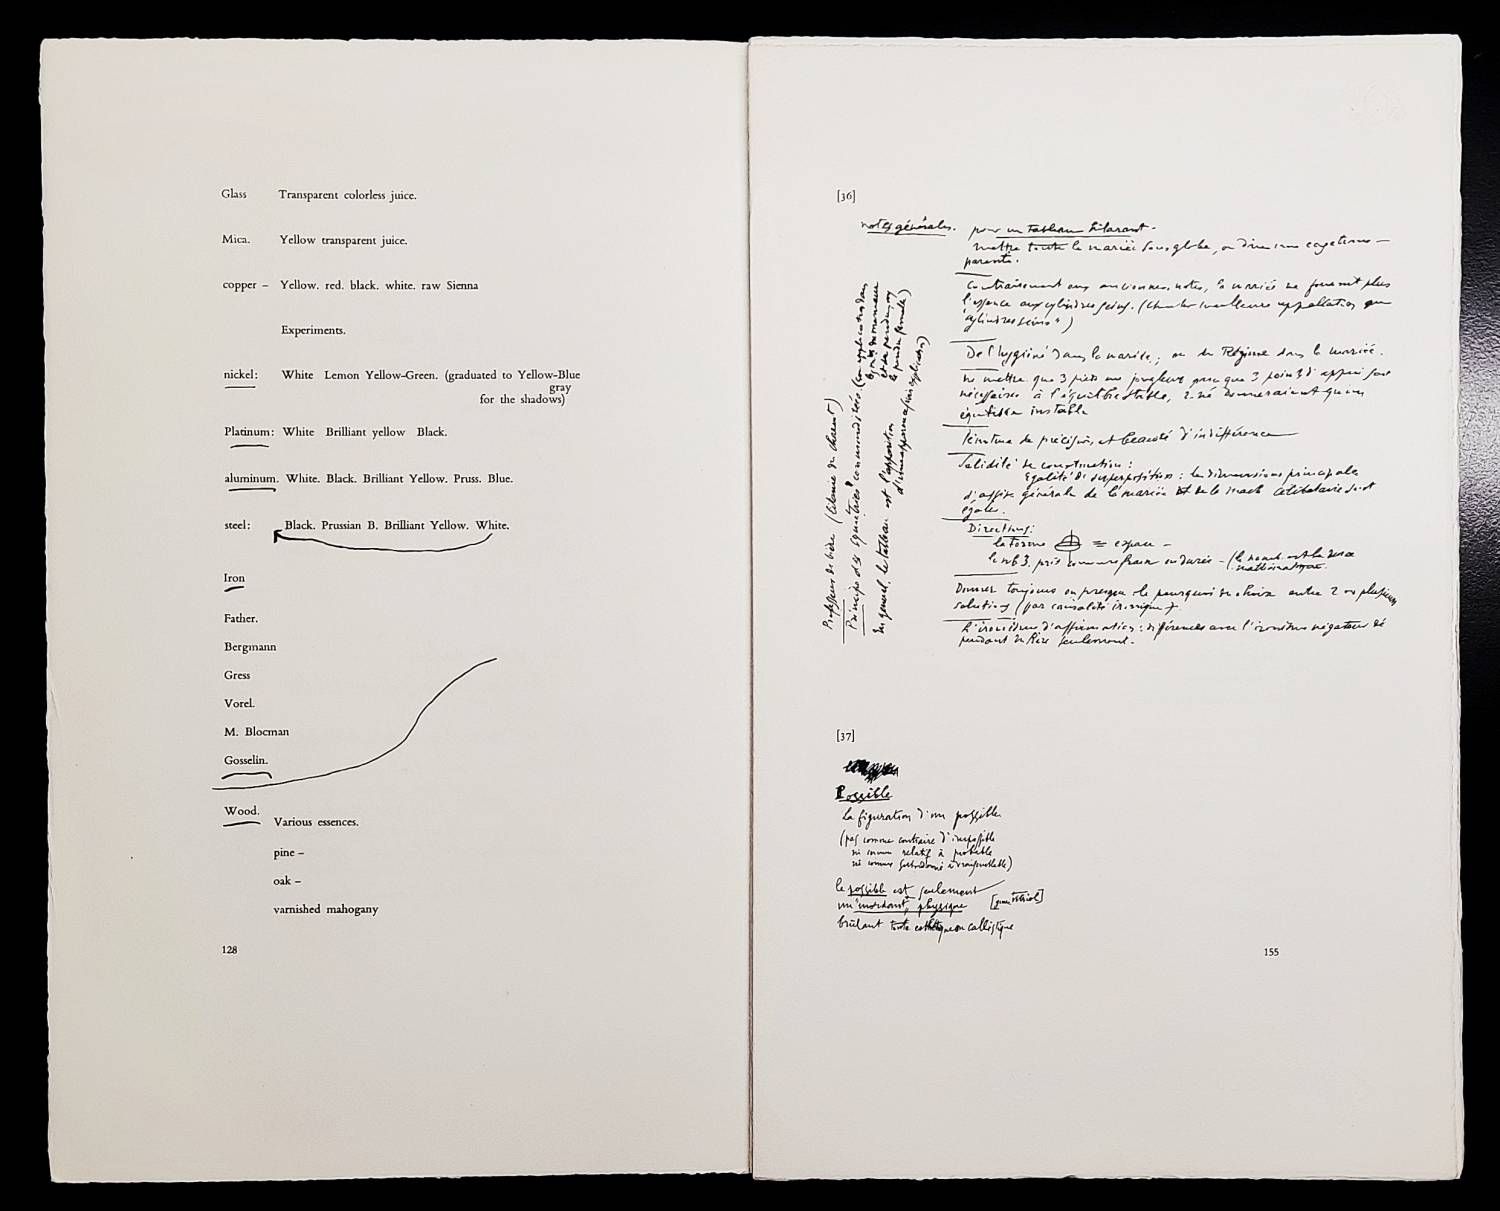 Glass Transparent colorless juice.
Mica. Yellow transparent juice.
copper – Yellow. red. black. white. raw Sienna
Experiments.
nickel: White Lemon Yellow-Green. (graduated to Yellow-Blue
gray
for the shadows)
Platinum: White Brilliant yellow Black.
aluminum. White. Black. Brilliant Yellow. Pruss. Blue.
steel: Black. Prussian B. Brilliant Yellow. White.
Iron
Father.
Bergmann
Gress
Vorel.
M. Blocman
Gosselin.
Wood.
Various essences.
pine –
oak –
varnished mahogany
128
[36]
notes générales. pour un tableau hilarant.
mettre toute la mariée sous globe, ou dans une cage trans-
parente.
Contrairement aux anciennes notes, la mariée ne fournit plus
l'essence aux cylindres seins. (chercher meilleure appellation que
"cylindres seins")
De l'hygiène dans la mariée; ou du Régime dans la mariée.
ne mettre que 3 pieds au jongleur parce que 3 points d'appui sont
nécessaires à l'équilibre stable, 2 ne donneraient qu'un
équilibre instable
Peinture de précision, et beauté d'indifférence
Solidité de construction:
Egalité de superposition: les dimensions principales
d'assise générale de la mariée et de la mach célibataire sont
égales.
Directions:
la forme = espace –
le nb 3. pris comme refrain en durée – (le nomb. est la durée
mathématique.
Donner toujours ou presque le pourquoi du choix entre 2 ou plusieurs
solutions (par causalité ironique).
L'ironisme d'affirmation: différences avec l'ironisme négateur dé
pendant du Rire seulement.
Professeur de bière (Litanie du chariot)
Principe des "charités" commodités
En général, le tableau est l'apparition
d'une apparence
[37]
Possible
La figuration d'un possible.
(pas comme contraire d'impossible
ni comme relatif à probable
ni comme subordonné à vraisemblable)
le possible est seulement
un "mordant" physique [genre vitriol]
brûlant toute esthétique ou callistique
155